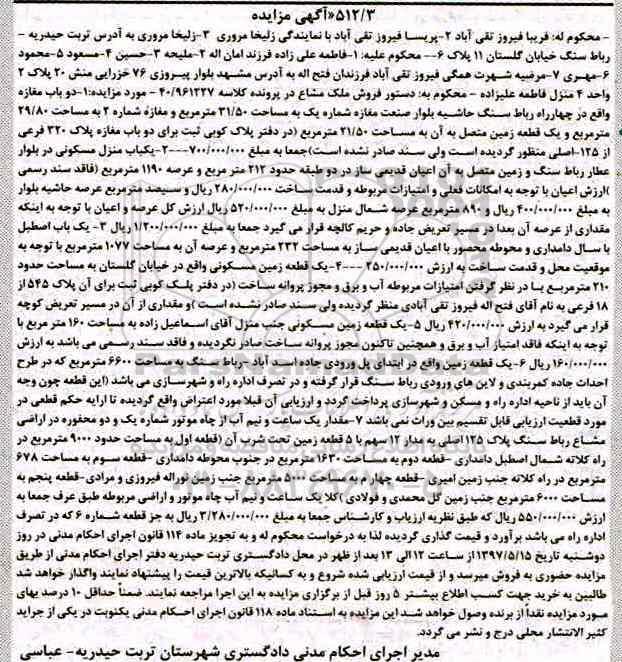 ۵۱۲/۳«آگهی مزایده
- محکوم له: فریبا فیروز تقی آباد ۲-پریسا فیروز تقی آباد با نمایندگی زلیخا مروری ۳-زلیخا مروری به آدرس تربت حیدریه -
رباط سنگ خیابان گلستان ۱۱ پلاک ۶-- محکوم علیه: ۱-فاطمه علی زاده فرزند امان اله ۲-ملیحه ۳-حسین ۴-مسعود ۵-محمود
۶-مهری ۷-مرضیه شهرت همگی فیروز تقی آباد فرزندان فتح اله به آدرس مشهد بلوار پیروزی ۷۶ خزرایی منش ۲۰ پلاک ۲
واحد ۴ منزل فاطمه علیزاده - محکوم به: دستور فروش ملک مشاع در پرونده کلاسه ۴۰/۹۶۱۲۲۷ - مورد مزایده:۱-دو باب مغازه
واقع در چهارراه رباط سنگ حاشیه بلوار صنعت مغازه شماره یک به مساحت ۳۱/۵۰ مترمربع و مغازه شماره ۲ به مساحت ۲۹/۸۰
مترمربع و یک قطعه زمین متصل به آن به مساحت ۲۱/۵۰ مترمربع (در دفتر پلاک کوبی ثبت برای دو باب مغازه پلاک ۳۲۰ فرعی
از ۱۲۵-اصلی منظور گردیده است ولی سند صادر نشده است)جمعا به مبلغ ۷۰۰/۰۰۰/۰۰۰---۲-یکباب منزل مسکونی در بلوار
عطار رباط سنگ و زمین متصل به آن اعیان قدیمی ساز در دو طبقه حدود ۲۱۲ متر مربع و عرصه ۱۱۹۰ مترمربع (فاقد سند رسمی
)ارزش اعیان با توجه به امکانات فعلی و امتیازات مربوطه و قدمت ساخت ۲۸۰/۰۰۰/۰۰۰ ریال و سیصد مترمربع عرصه حاشیه بلوار
به مبلغ ۴۰۰/۰۰۰/۰۰۰ ریال و ۸۹۰ مترمربع عرصه شمال منزل به مبلغ ۵۲۰/۰۰۰/۰۰۰ ریال ارزش کل عرصه و اعیان با توجه به اینکه
مقداری از عرصه آن بعدا در مسیر تعریض جاده و حریم کالچه قرار می گیرد جمعا به مبلغ ۱/۲۰۰/۰۰۰/۰۰۰ ریال ۳- یک باب اصطبل
با سال دامداری و محوطه محصور با اعیان قدیمی ساز به مساحت ۲۳۲ مترمربع و عرصه آن به مساحت ۱۰۷۷ مترمربع با توجه به
موقعیت محل و قدمت ساخت به ارزش ۲۵۰/۰۰۰/۰۰۰ ---۴-یک قطعه زمین مسکونی واقع در خیابان گلستان به مساحت حدود
۲۱۰ مترمربع با در نظر گرفتن امتیازات مربوطه آب و برق و مجوز پروانه ساخت (در دفتر پلک کوبی ثبت برای آن پلاک ۵۴۵ از
۱۸ فرعی به نام آقای فتح اله فیروز تقی آبادی منظر گردیده ولی سند صادر نشده است )و مقداری از آن در مسیر تعریض کوچه
قرار می گیرد به ارزش ۴۲۰/۰۰۰/۰۰۰ ریال ۵-یک قطعه زمین مسکونی جنب منزل آقای اسماعیل زاده به مساحت ۱۶۰ متر مربع با
توجه به اینکه فاقد امتیاز آب و برق و همچنین تاکنون مجوز پروانه ساخت صادر نگردیده و فاقد سند رسمی می باشد به ارزش
۱۶۰/۰۰۰/۰۰۰ ریال ۶-یک قطعه زمین واقع در ابتدای پل ورودی جاده اسد آباد -رباط سنگ به مساحت ۶۶۰۰ مترمربع که در طرح
احداث جاده کمربندی و لاین های ورودی رباط سنگ قرار گرفته و در تصرف اداره راه و شهرسازی می باشد (این قطعه چون وجه
آن باید از ناحیه اداره راه و مسکن و شهرسازی پرداخت گردد و ارزیابی آن قبلا مورد اعتراض واقع گردیده تا ارایه حکم قطعی در
مورد قطعیت ارزیابی قابل تقسیم بین وراث نمی باشد ۷-مقدار یک ساعت و نیم آب از چاه موتور شماره یک و دو محفوره در اراضی
مشاع رباط سنگ پلاک ۱۲۵ اصلی به مدار ۱۲ سهم با ۵ قطعه زمین تحت شرب آن (قطعه اول به مساحت حدود ۹۰۰۰ مترمربع در
راه کلاته شمال اصطبل دامداری -قطعه دوم به مساحت ۱۶۳۰ مترمربع در جنوب محوطه دامداری -قطعه سوم به مساحت ۶۷۸
مترمربع در راه کلاته جنب زمین امیری -قطعه چهارم به مساحت ۵۰۰ مترمربع جنب زمین نوراله فیروزی و مرادی-قطعه پنجم به
مساحت ۶۰۰۰ مترمربع جنب زمین گل محمدی و فولادی )کلا یک ساعت و نیم آب چاه موتور و اراضی مربوطه طبق عرف جمعا به
ارزش ۵۵۰/۰۰۰/۰۰۰ ریال که طبق نظریه ارزیاب و کارشناس جمعا به مبلغ ۳/۲۸۰/۰۰۰/۰۰۰ ریال به جز قطعه شماره ۶ که در تصرف
اداره راه می باشد برآورد و قیمت گذاری گردیده لذا به درخواست محکوم له و به تجویز ماده ۱۱۴ قانون اجرای احکام مدنی در روز
دوشنبه تاریخ ۱۳۹۷/۵/۱۵ از ساعت ۱۲ الی ۱۳ بعد از ظهر در محل دادگستری تربت حیدریه دفتر اجرای احکام مدنی از طریق
مزایده حضوری به فروش میرسد و از قیمت ارزیابی شده شروع و به کسانیکه بالاترین قیمت را پیشنهاد نمایند واگذار خواهد شد
طالبین به خرید جهت کسب اطلاع بیشتر ۵ روز قبل از برگزاری مزایده به این اجرا مراجعه نمایند. ضمناً حداقل ۱۰ درصد بهای
مورد مزایده نقداً از برنده وصول خواهد شد این مزایده به استناد ماده ۱۱۸ قانون اجرای احکام مدنی یکنوبت در یکی از جراید
کثیر الانتشار محلی درج و نشر می گردد.
مدیر اجرای احکام مدنی دادگستری شهرستان تربت حیدریه- عباسی